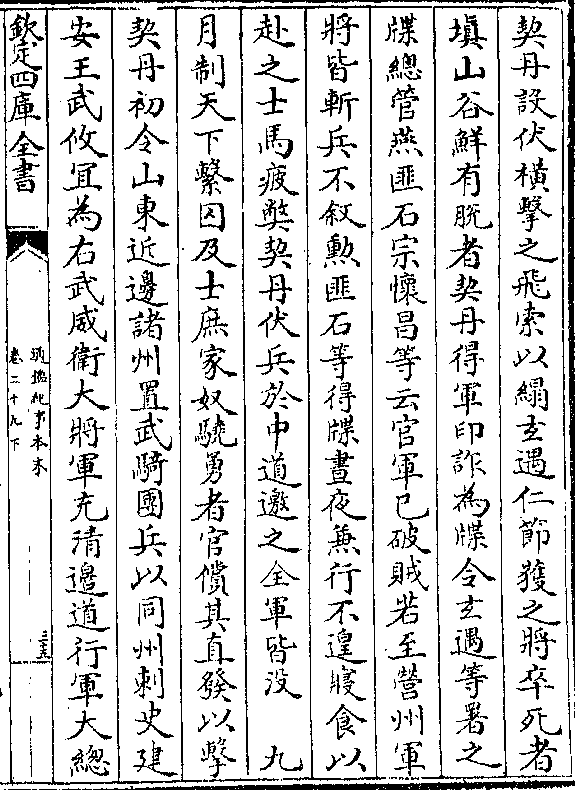 契丹設伏橫擊之飛索以緺玄遇仁節獲之將卒死者
塡山谷鮮有脫者契丹得軍印詐為牒令玄遇等署之
牒總管燕匪石宗懷昌等云官軍已破賊若至營州軍
將皆斬兵不敘勲匪石等得牒晝夜兼行不遑寢食以
赴之士馬疲獘契丹伏兵於中道邀之全軍皆没　九
月制天下繫囚及士庶家奴驍勇者官償其直發以擊
契丹初令山東近邊諸州置武騎團兵以同州刺史建
安王武攸宜為右武威衛大將軍充清邊道行軍大總
欽定四庫全書
通鑑紀事本末
卷二十九下
三五